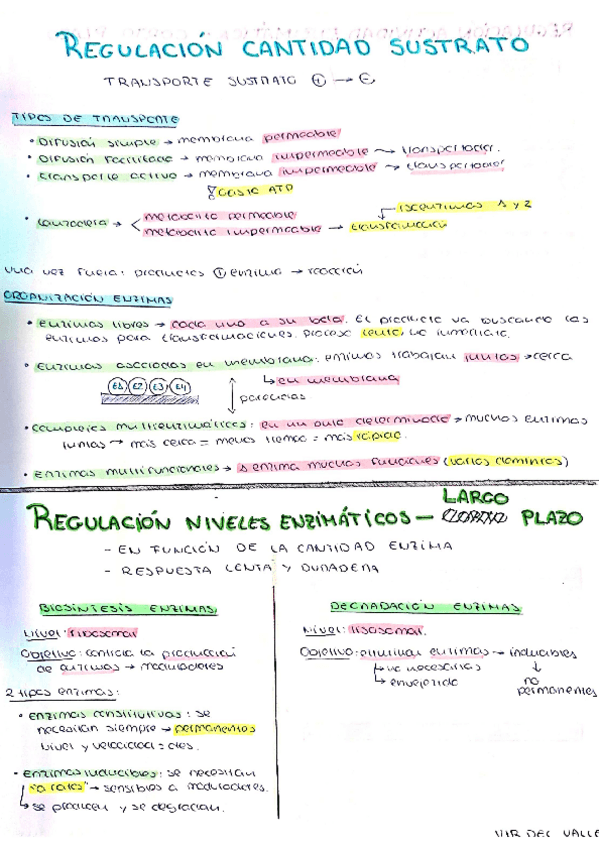 REGULACIÓN CANTIDAD SUSTRATO
TRANSPORTE SUSTRATO
TIPOS DE TRANSPORTE
• Difusión simple → membrana permeable
• Difusión facilitada → membrana impermeable → transportador.
• transporte activo → membrana impermeable → transportador
gasto ATP
• Lanzadera → metabolito permeable
metabolito impermeable → transformación
isoenzimas 1 y 2
una vez fuera: productos enzima → reacción
ORGANIZACIÓN ENZIMAS
• enzimas libres → cada uno a su bola. El producto va buscando las
enzimas para transformaciones. proceso lento, no inmediato.
• Enzimas asociadas en membrana: enzimas trabajan juntas → cerca
↳ en membrana
E1 E2 E3 E4
parecidas
• complejos multienzimáticos: en un orden determinado → muchos enzimas
juntas → más cerca = menos tiempo = más rápido.
• enzimas multifuncionales → 1 enzima muchas funciones (varios dominios)
REGULACIÓN NIVELES ENZIMÁTICOS — LARGO PLAZO
- EN FUNCIÓN DE LA CANTIDAD ENZIMA
- RESPUESTA LENTA Y DURADERA
BIOSÍNTESIS ENZIMAS
Nivel: ribosomal
Objetivo: controla la producción
de enzimas → moduladores
2 tipos enzimas:
• enzimas constitutivas: se
necesitan siempre → permanentes
Nivel y velocidad = ctes.
• enzimas inducibles: se necesitan
"a ratos" → sensibles a moduladores.
↳ se producen y se degradan.
DEGRADACIÓN ENZIMAS
Nivel: lisosomal.
Objetivo: eliminar enzimas → inducibles
↳ no necesarias
↳ envejecido
↓
no
permanentes
VIR DEL VALLE